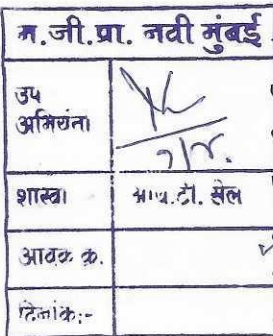 म.जी.प्रा. नवी मुंबई
उप
अभियंता
शाखा आय.टी. सेल
आवक क्र.
दिनांक:-